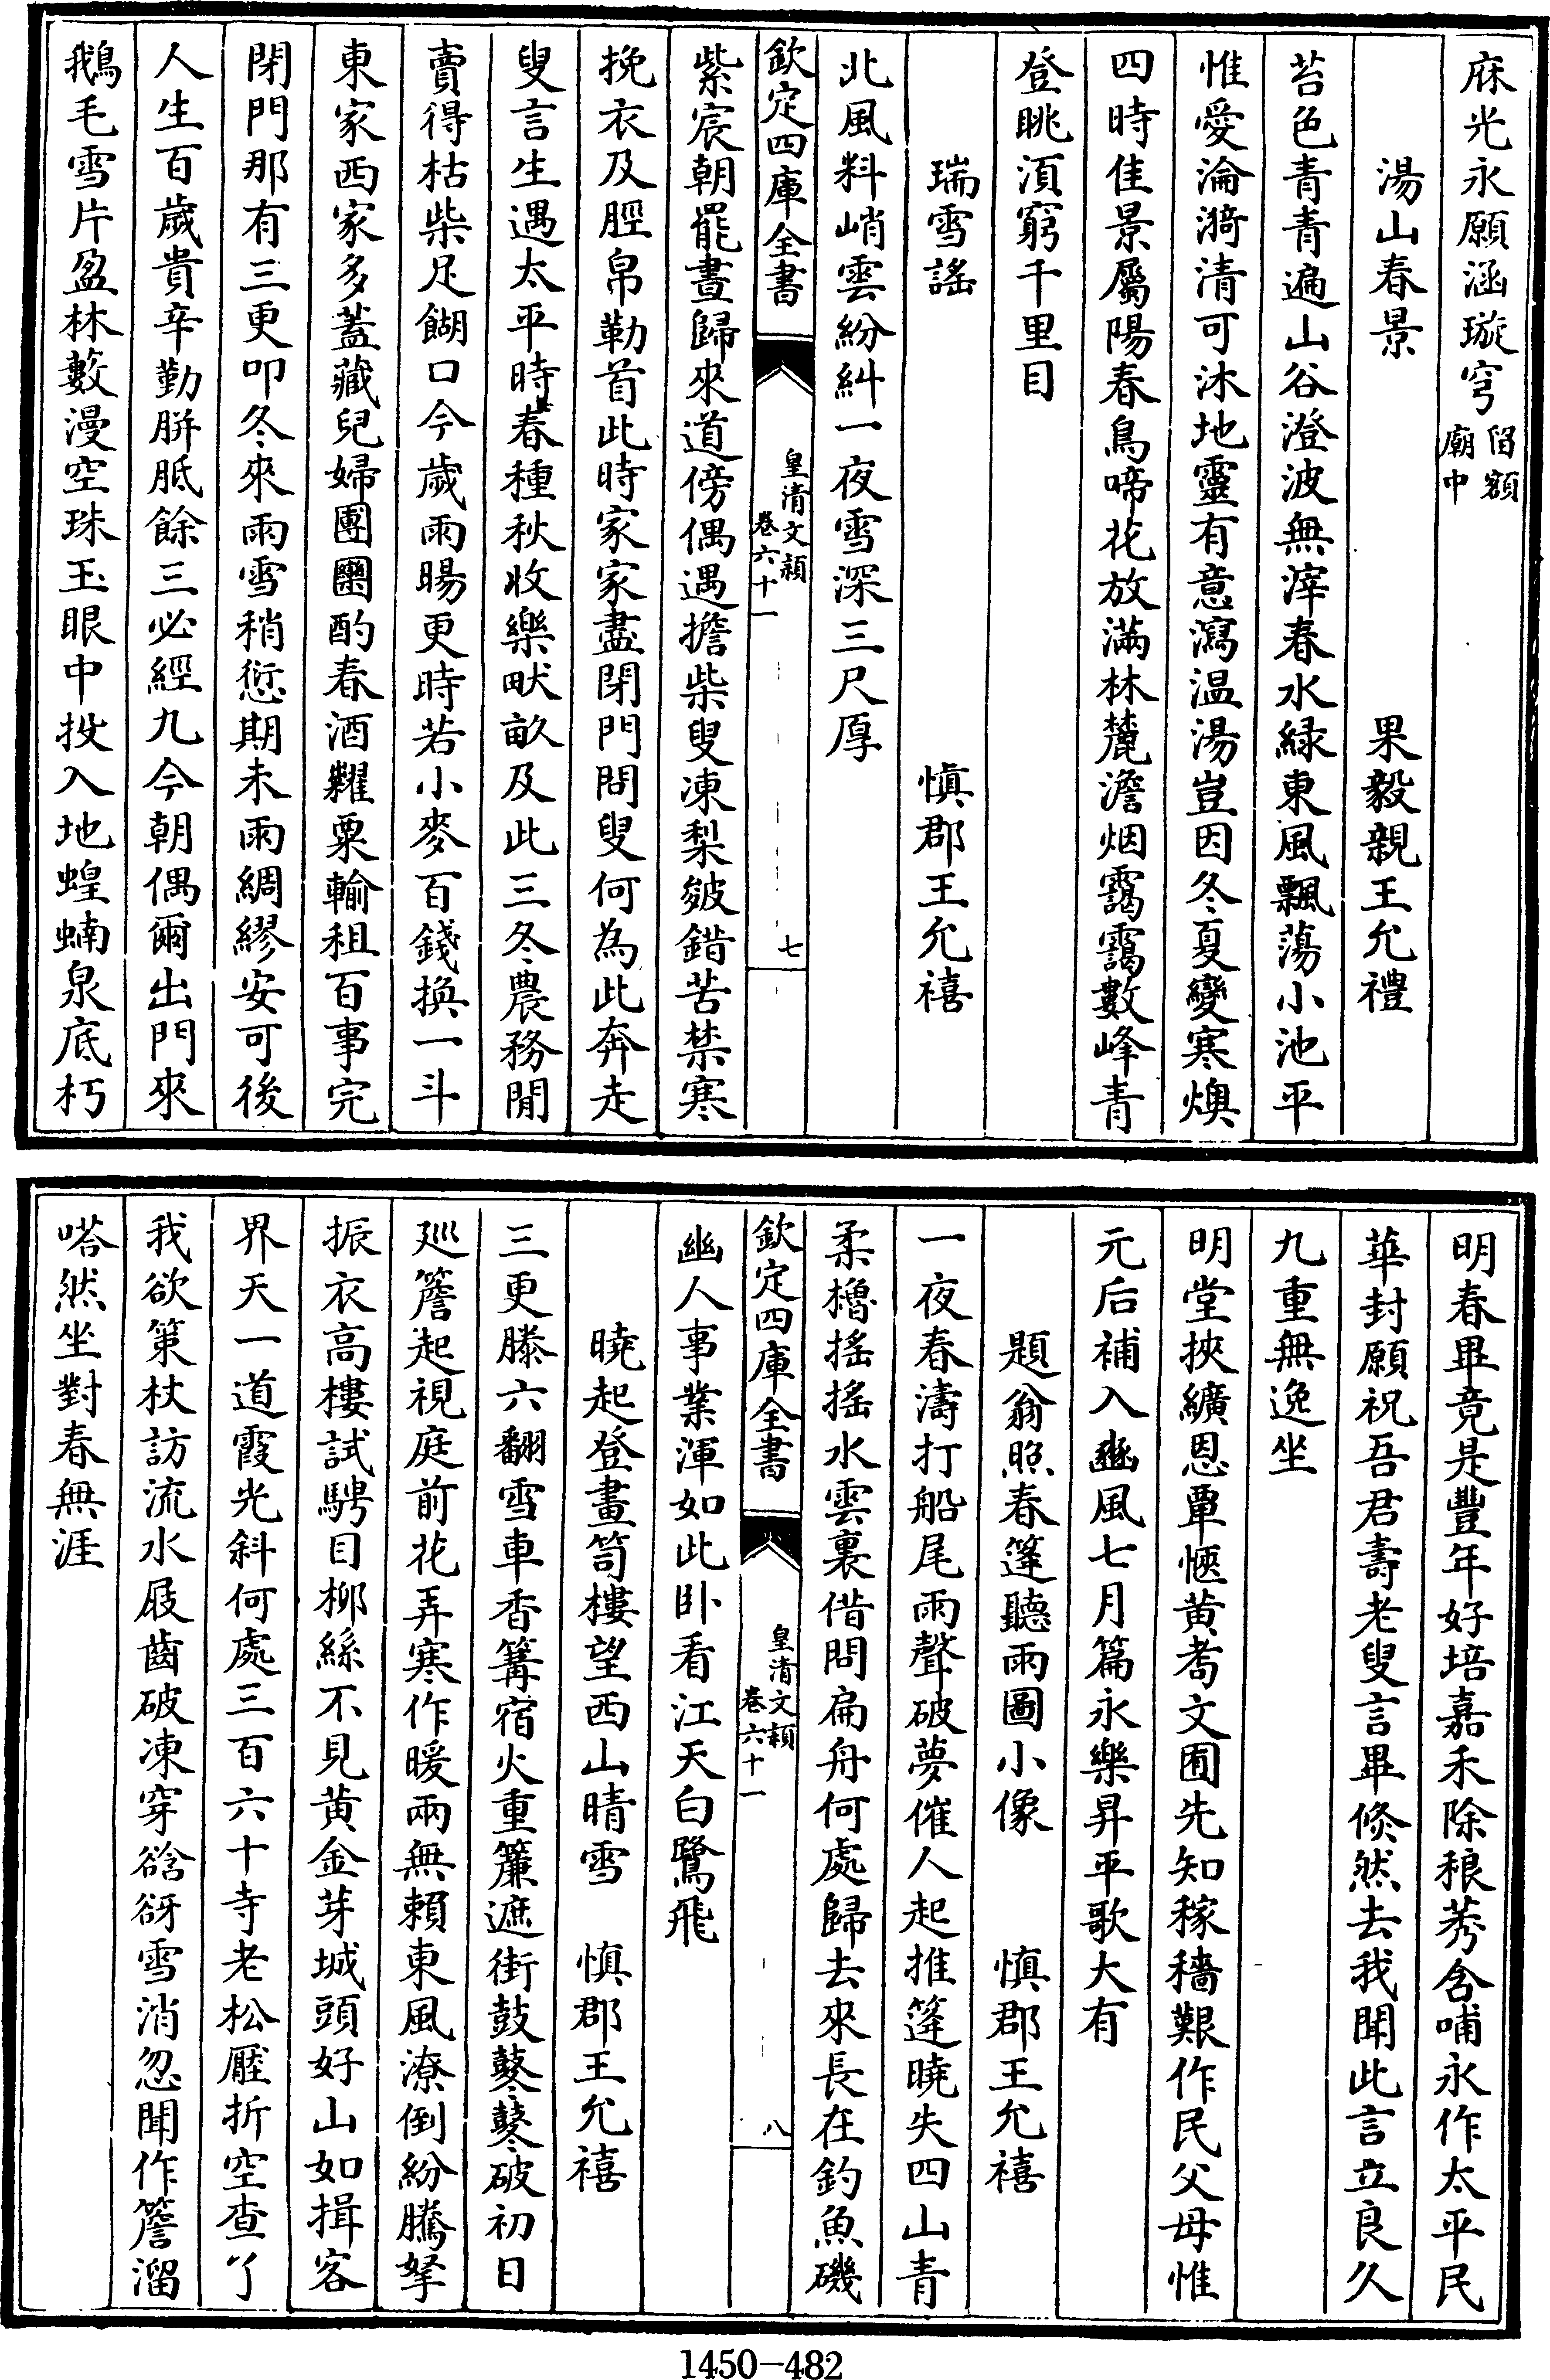 庥光永願涵璇穹留額廟中
湯山春景　果毅親王允禮
苔色青青遍山谷澄波無滓春水緑東風飄蕩小池平
惟愛淪漪清可沐地靈有意瀉温湯豈因冬夏變寒燠
四時佳景屬陽春鳥啼花放滿林麓澹烟靄靄數峰青
登眺湏窮千里目
瑞雪謠　慎郡王允禧
北風料峭雲紛糾一夜雪深三尺厚
欽定四庫全書　皇清文穎　卷六十一　七
紫宸朝罷晝歸來道傍偶遇擔柴叟凍梨皴錯苦禁寒
挽衣及脛帛勒首此時家家盡閉門問叟何為此奔走
叟言生遇太平時春種秋收樂畎畝及此三冬農務閒
賣得枯柴足餬口今歲雨暘更時若小麥百錢換一斗
東家西家多蓋藏兒婦團圞酌春酒糶粟輸租百事完
閉門那有三更叩冬來雨雪稍愆期未雨綢繆安可後
人生百歲貴辛勤胼胝餘三必經九今朝偶爾出門來
鵝毛雪片盈林藪漫空珠玉眼中投入地蝗蝻泉底朽
明春畢竟是豐年好培嘉禾除稂莠含哺永作太平民
華封願祝吾君壽老叟言畢倐然去我聞此言立良久
九重無逸坐
明堂挾纊恩覃愜黄耈文囿先知稼穡艱作民父母惟
元后補入豳風七月篇永樂昇平歌大有
題翁照春篷聽雨圖小像　慎郡王允禧
一夜春濤打船尾雨聲破夢催人起推篷曉失四山青
柔櫓搖搖水雲裏借問扁舟何處歸去來長在釣魚磯
欽定四庫全書　皇清文穎　卷六十一　八
幽人事業渾如此卧看江天白鷺飛
曉起登畫笥樓望西山晴雪　慎郡王允禧
三更滕六翻雪車香篝宿火重簾遮街鼓鼕鼕破初日
廵簷起視庭前花弄寒作暖兩無賴東風潦倒紛騰拏
振衣高樓試騁目栁絲不見黄金芽城頭好山如揖客
界天一道霞光斜何處三百六十寺老松壓折空查丫
我欲䇿杖訪流水屐齒破凍穿谽谺雪消忽聞作簷溜
嗒然坐對春無涯
1450—482